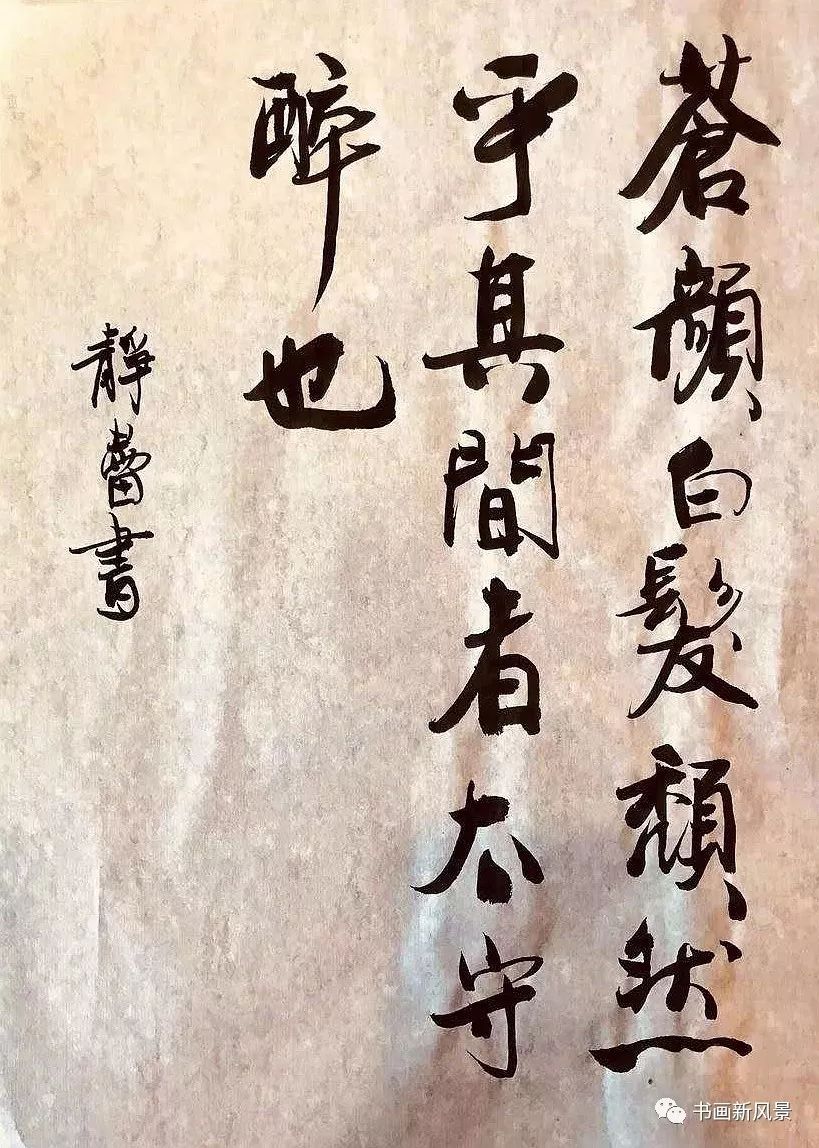 蒼顔白髮頽然
乎其間者太守
醉也
靜蕾書
书画新风景